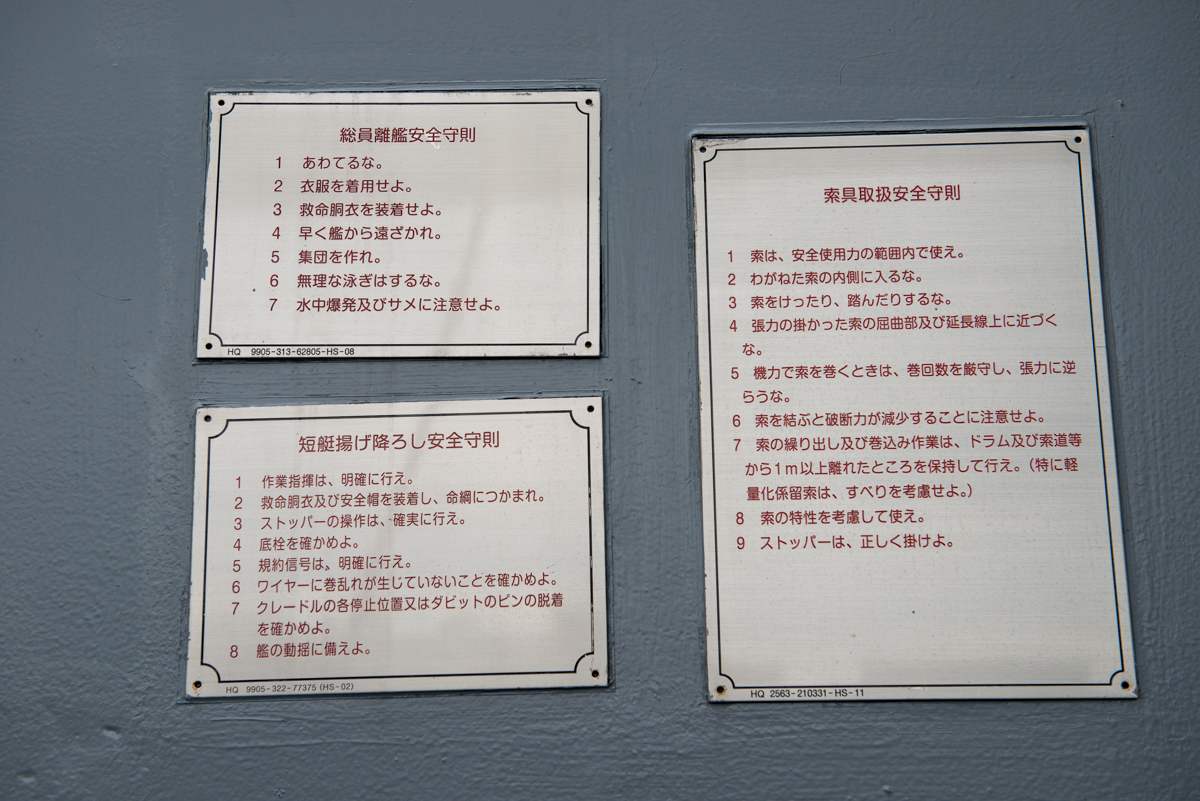 総員離艦安全守則
1 あわてるな。
2 衣服を着用せよ。
3 救命胴衣を装着せよ。
4 早く艦から遠ざかれ。
5 集団を作れ。
6 無理な泳ぎはするな。
7 水中爆発及びサメに注意せよ。
HQ 9905-313-62805-HS-08
短艇揚げ降ろし安全守則
1 作業指揮は、明確に行え。
2 救命胴衣及び安全帽を装着し、命綱につかまれ。
3 ストッパーの操作は、確実に行え。
4 底栓を確かめよ。
5 規約信号は、明確に行え。
6 ワイヤーに巻乱れが生じていないことを確かめよ。
7 クレードルの各停止位置又はダビットのピンの脱着
を確かめよ。
8 艦の動揺に備えよ。
HQ 9905-322-77375 (HS-02)
索具取扱安全守則
1 索は、安全使用力の範囲内で使え。
2 わがねた索の内側に入るな。
3 索をけったり、踏んだりするな。
4 張力の掛かった索の屈曲部及び延長線上に近づく
な。
5 機力で索を巻くときは、巻回数を厳守し、張力に逆
らうな。
6 索を結ぶと破断力が減少することに注意せよ。
7 索の繰り出し及び巻込み作業は、ドラム及び索道等
から1m以上離れたところを保持して行え。(特に軽
量化係留索は、すべりを考慮せよ。)
8 索の特性を考慮して使え。
9 ストッパーは、正しく掛けよ。
HQ 2563-210331-HS-11